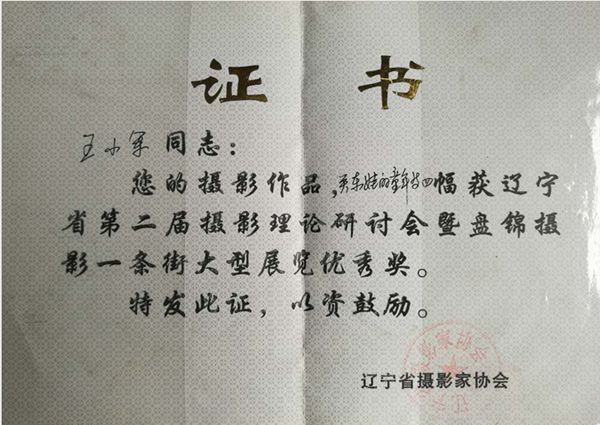 证书
王小军同志：
您的摄影作品，关东娃的童年等四幅获辽宁
省第二届摄影理论研讨会暨盘锦摄
影一条街大型展览优秀奖。
特发此证，以资鼓励。
辽宁省摄影家协会